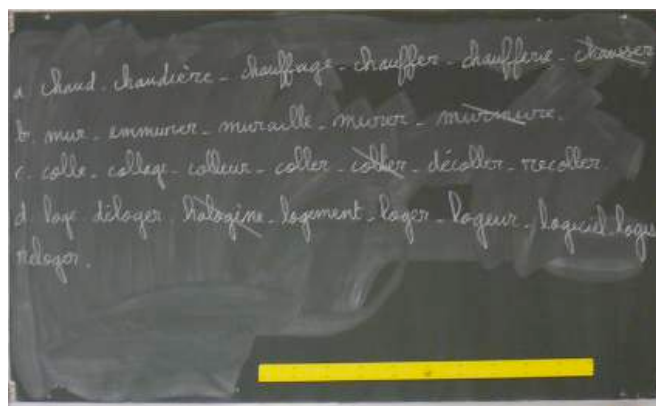 a. chaud. chaudière - chauffage - chauffer - chaufferie - chausser
b. mur - emmurer - muraille - murer - murmure.
c. colle - collage - colleur - coller - collier - décoller - recoller.
d. loge déloger halogène - logement - loger - logeur - logiciel - logis
reloger.